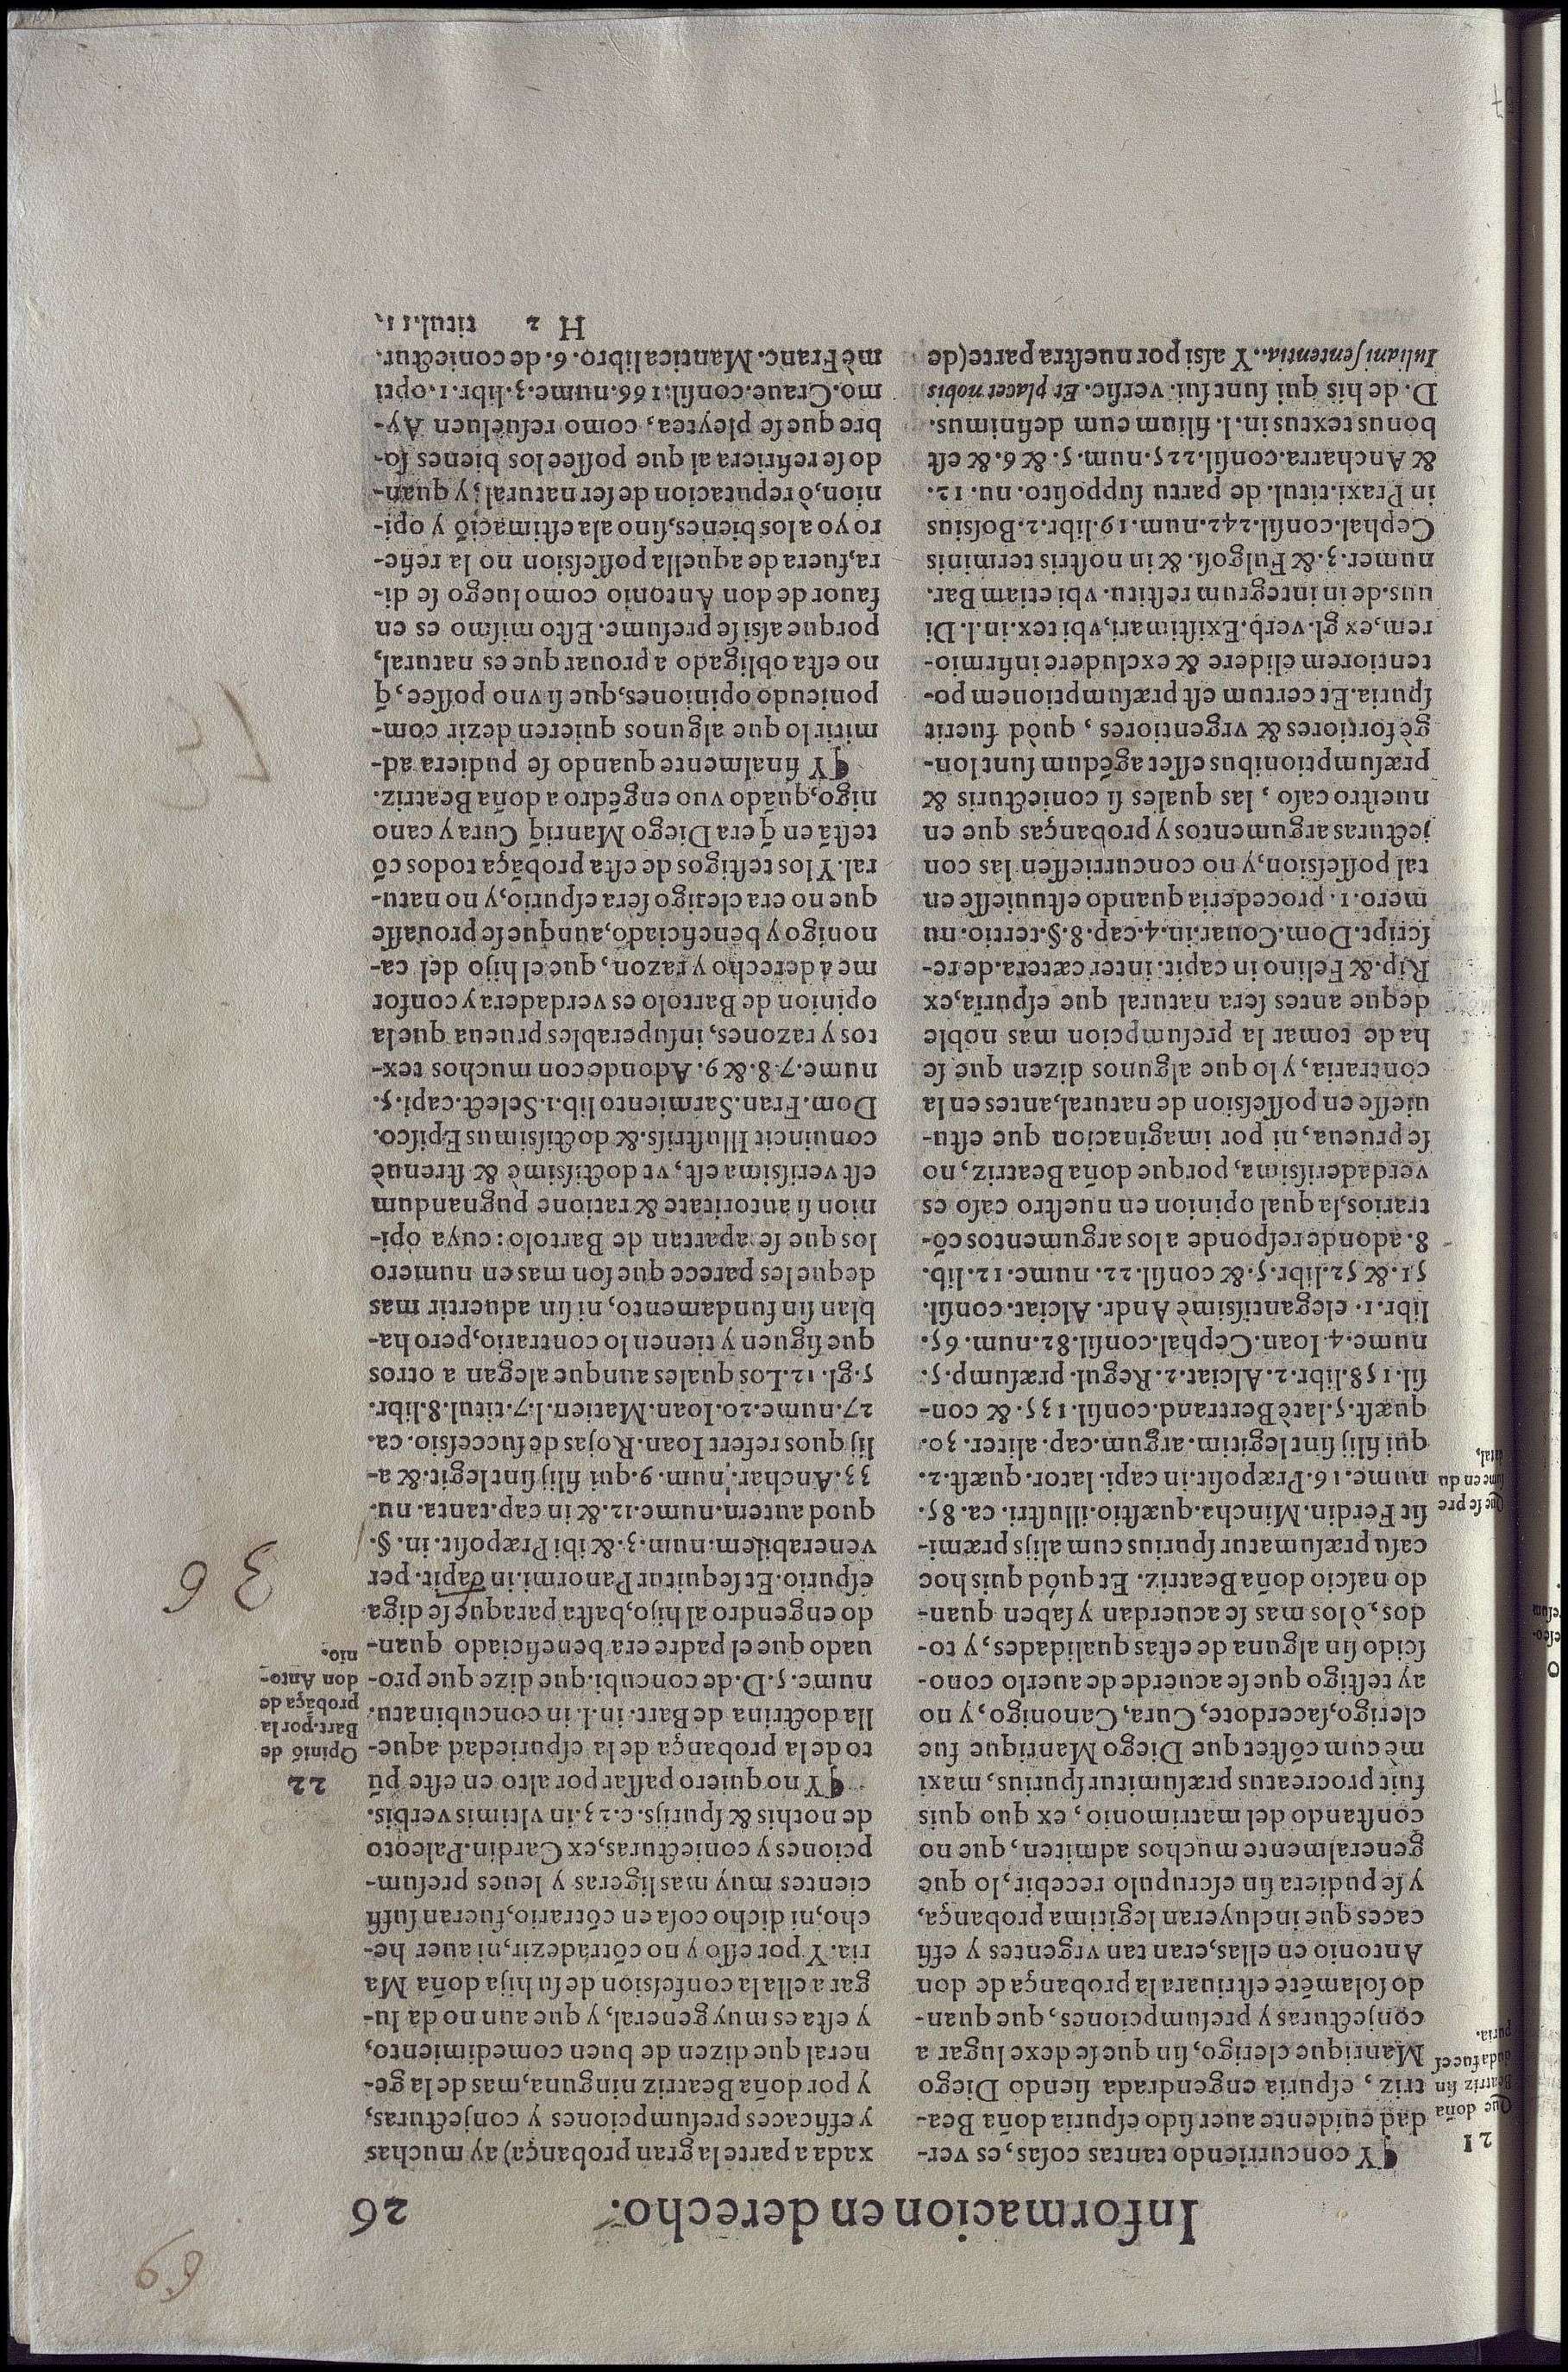 69
Informacion en derecho. 26
21
Que doña
Beatriz ſin
duda fue eſ
puria.
¶Y concurriendo tantas coſas, es ver-
dad euidente auer ſido eſpuria doña Bea-
triz, eſpuria engendrada ſiendo Diego
Manrique clerigo, ſin que ſe dexe lugar a
conjecturas y preſumpciones, que quan-
do ſolamẽte eſtriuara la probança de don
Antonio en ellas, eran tan vrgentes y effi
caces que incluyeran legitima probança,
y ſe pudiera ſin eſcrupulo recebir, lo que
generalmente muchos admiten, que no
conſtando del matrimonio, ex quo quis
fuit procreatus præſumitur ſpurius, maxi
mè cum cõſtet que Diego Manrique fue
clerigo, ſacerdote, Cura, Canonigo, y no
ay teſtigo que ſe acuerde de auerlo cono-
ſcido ſin alguna de eſtas qualidades, y to-
dos, ò los mas ſe acuerdan y ſaben quan-
do naſcio doña Beatriz. Et quòd quis hoc
caſu præſumatur ſpurius cum alijs præmi-
ſit Ferdin. Mincha. quæſtio. illuſtri. ca. 85.
nume. 16. Præpoſit. in capi. lator. quæſt. 2.
qui filij ſint legitim. argum. cap. aliter. 30.
quæſt. 5. latè Bertrand. conſil. 135. & con-
ſil. 158. libr. 2. Alciat. 2. Regul. præſump. 5.
nume. 4. Ioan. Cephal. conſil. 82. num. 65.
libr. 1. elegantiſsimè Andr. Alciat. conſil.
51. & 52. libr. 5. & conſil. 22. nume. 12. lib.
8. adonde reſponde a los argumentos cõ-
trarios, la qual opinion en nueſtro caſo es
verdaderiſsima, porque doña Beatriz, no
ſe prueua, ni por imaginacion que eſtu-
uieſſe en poſſeſsion de natural, antes en la
contraria, y lo que algunos dizen que ſe
ha de tomar la preſumpcion mas noble
de que antes ſera natural que eſpuria, ex
Rip. & Felino in capit. inter cætera. de re-
ſcript. Dom. Couar. in. 4. cap. 8. §. tertio. nu
mero. 1. procederia quando eſtuuieſſe en
tal poſſeſsion, y no concurrieſſen las con
jecturas argumentos y probanças que en
nueſtro caſo, las quales ſi coniecturis &
præſumptionibus eſſet agẽdum ſunt lon-
gè fortiores & vrgentiores, quòd fuerit
ſpuria. Et certum eſt præſumptionem po-
tentiorem elidere & excludere infirmio-
rem, ex gl. verb. Exiſtimari, vbi tex. in. l. Di
uus. de in integrum reſtitu. vbi etiam Bar.
numer. 3. & Fulgoſi. & in noſtris terminis
Cephal. conſil. 242. num. 19. libr. 2. Boſsius
in Praxi. titul. de partu ſuppoſito. nu. 12.
& Ancharra. conſil. 225. num. 5. & 6. & eſt
bonus textus in. l. filium eum definimus.
D. de his qui ſunt ſui. verſic. Et placet nobis
Iuliani ſententia. Y aſsi por nueſtra parte (de
Que ſe pre
ſume en du
xada a parte la gran probança) ay muchas
y efficaces preſumpciones y conjecturas,
y por doña Beatriz ninguna, mas de la ge-
neral que dizen de buen comedimiento,
y eſta es muy general, y que aun no da lu-
gar a ella la confeſsion de ſu hija doña Ma
ria. Y por eſſo y no cõtradezir, ni auer he-
cho, ni dicho coſa en cõtrario, fueran ſuffi
cientes muy mas ligeras y leues preſum-
pciones y coniecturas, ex Cardin. Paleoto
de nothis & ſpurijs. c. 23. in vltimis verbis.
¶Y no quiero paſſar por alto en eſte pũ
to de la probança de la eſpuriedad aque-
lla doctrina de Bart. in. l. in concubinatu.
nume. 5. D. de concubi. que dize que pro-
uado que el padre era beneficiado quan-
do engendro al hijo, baſta para que ſe diga
eſpurio. Et ſequitur Panormi. in capit. per
venerabilem. num. 3. & ibi Præpoſit. in. §.
quod autem. nume. 12. & in cap. tanta. nu.
33. Anchar. num. 9. qui filij ſint legit. & a-
lij quos refert Ioan. Rojas de ſucceſsio. ca.
27. nume. 20. Ioan. Matien. l. 7. titul. 8. libr.
5. gl. 12. Los quales aunque alegan a otros
que ſiguen y tienen lo contrario, pero ha-
blan ſin fundamento, ni ſin aduertir mas
de que les parece que ſon mas en numero
los que ſe apartan de Bartolo: cuya opi-
nion ſi autoritate & ratione pugnandum
eſt veriſsima eſt, vt doctiſsimè & ſtrenuè
conuincit Illuſtriſs. & doctiſsimus Epiſco.
Dom. Fran. Sarmiento lib. 1. Select. capi. 5.
nume. 7. 8. & 9. Adonde con muchos tex-
tos y razones, inſuperables prueua que la
opinion de Bartolo es verdadera y confor
me à derecho y razon, que el hijo del ca-
nonigo y beneficiado, aunque ſe prouaſſe
que no era clerigo ſera eſpurio, y no natu-
ral. Y los teſtigos de eſta probãça todos cõ
teſtã en q̃ era Diego Manriq̃ Cura y cano
nigo, quãdo vuo engẽdro a doña Beatriz.
¶Y finalmente quando ſe pudiera ad-
mitir lo que algunos quieren dezir com-
poniendo opiniones, que ſi vno poſſee, q̃
no eſta obligado a prouar que es natural,
porque aſsi ſe preſume. Eſto miſmo es en
fauor de don Antonio como luego ſe di-
ra, fuera de aquella poſſeſsion no la refie-
ro yo a los bienes, ſino a la eſtimaciõ y opi-
nion, ò reputacion de ſer natural; y quan-
do ſe refiriera al que poſſee los bienes ſo-
bre que ſe pleytea, como reſueluen Ay-
mo. Craue. conſil. 166. nume. 3. libr. 1. opti
mè Franc. Mantica libro. 6. de coniectur.
H 2 titul. 11.
22
Opiniõ de
Bart. por la
probãça de
don Anto-
nio.
36